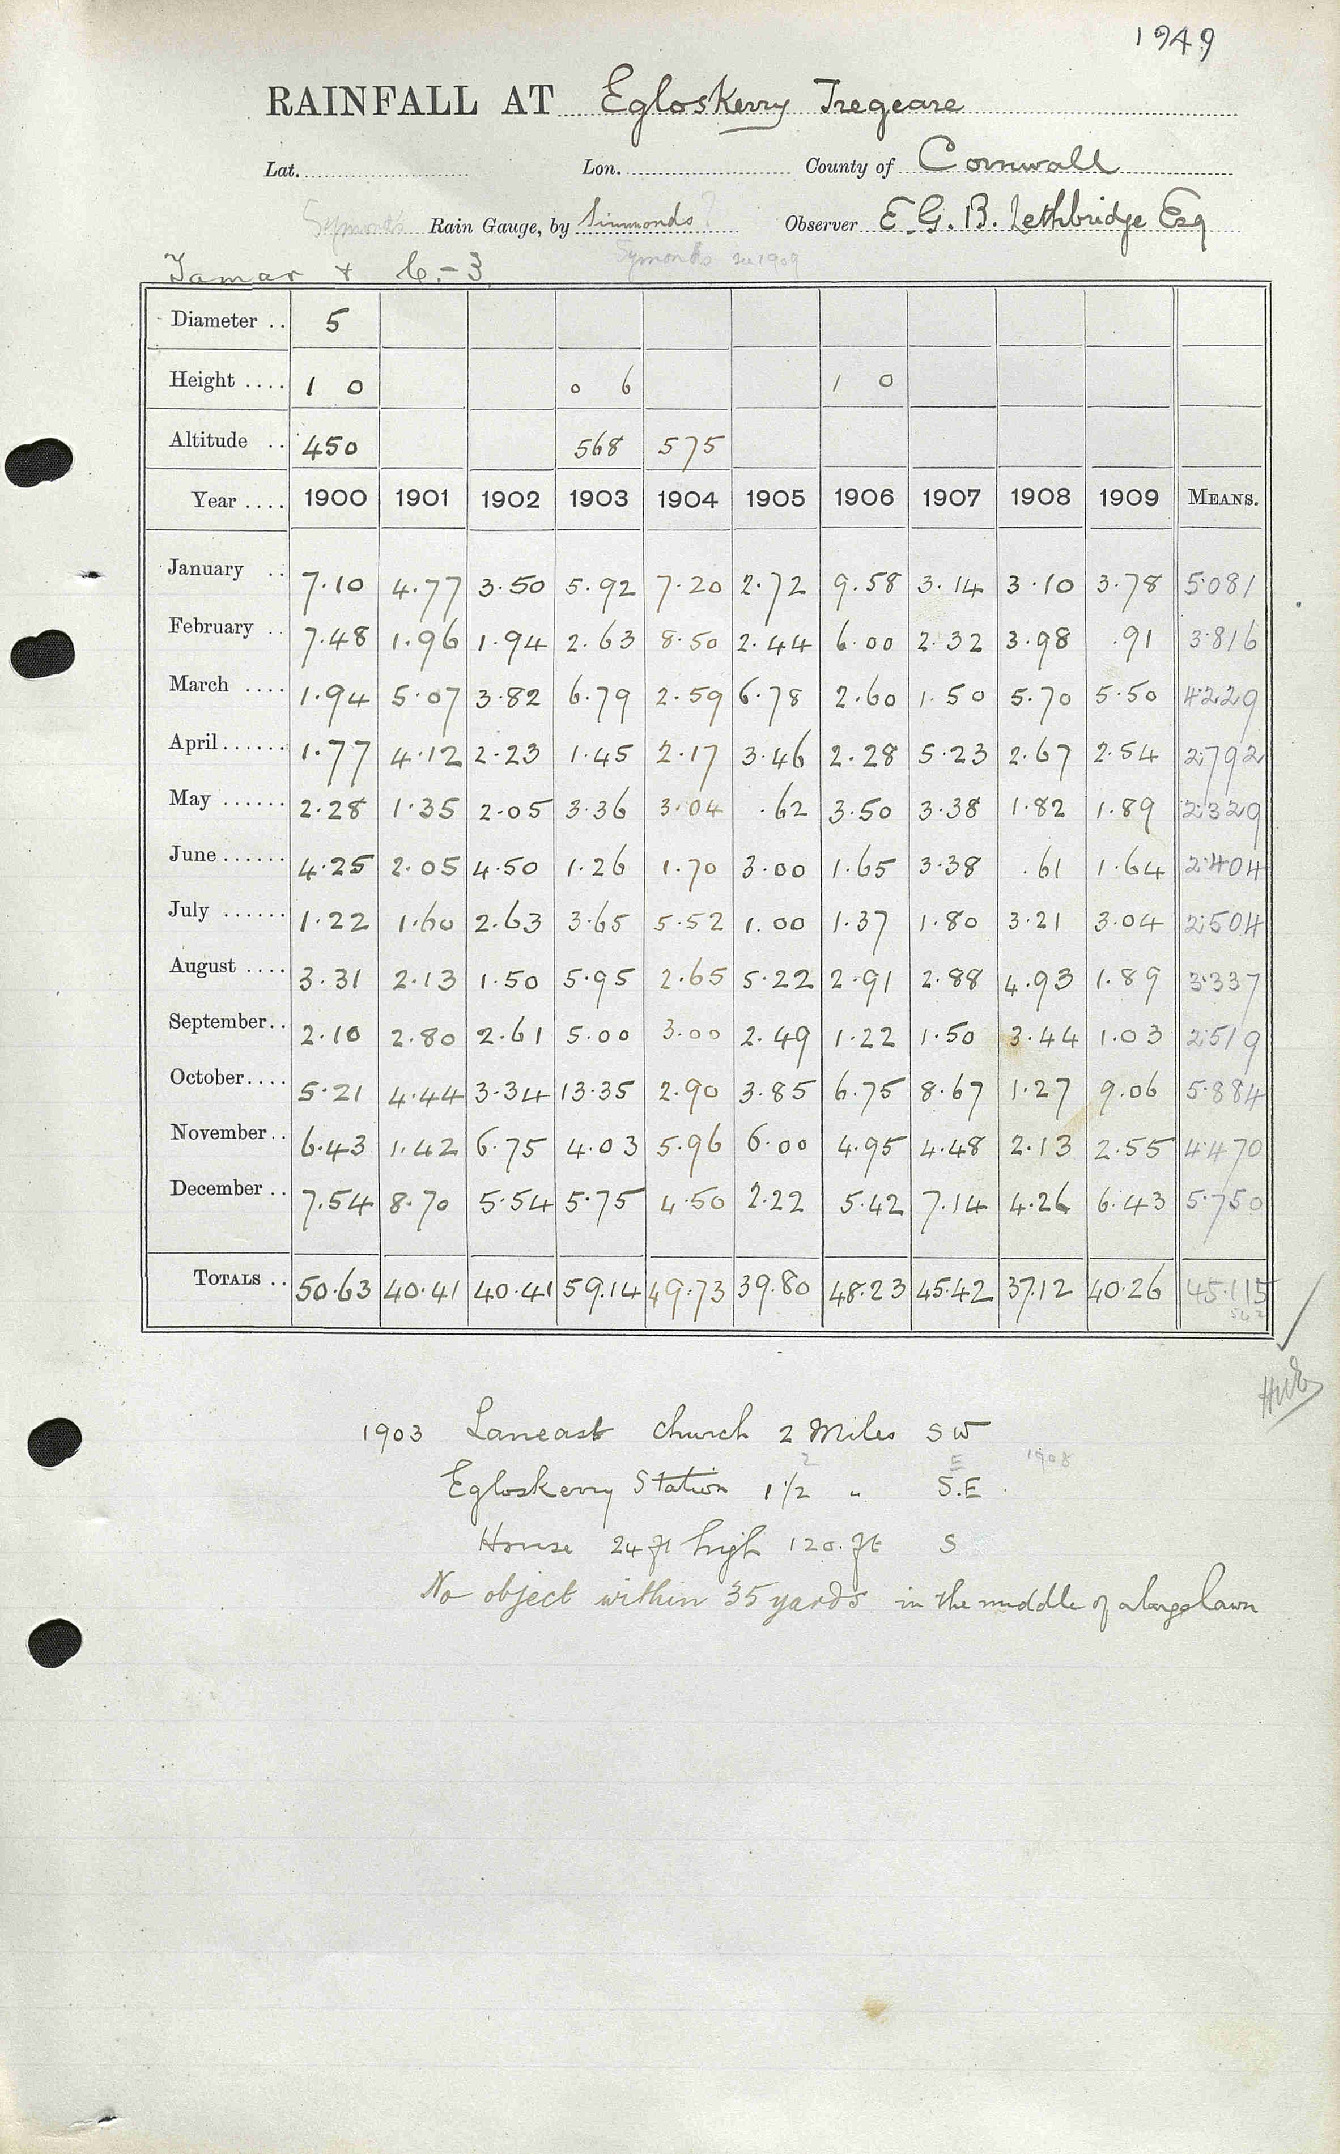 1949
RAINFALL AT Egloskerry Tregeare
Lat. Lon. County of Cornwall
Symonds Rain Gauge, by Simmonds ? Observer E. G. B. Lethbridge Esq
Symonds see 1909
Tamar + C.-3
Diameter .. 5
Height .... 1 0 0 6 1 0
Altitude .. 450 568 575
Year .... 1900 1901 1902 1903 1904 1905 1906 1907 1908 1909 MEANS.
January .. 7.10 4.77 3.50 5.92 7.20 2.72 9.58 3.14 3.10 3.78 5.081
February .. 7.48 1.96 1.94 2.63 8.50 2.44 6.00 2.32 3.98 .91 3.816
March .... 1.94 5.07 3.82 6.79 2.59 6.78 2.60 1.50 5.70 5.50 4.229
April ...... 1.77 4.12 2.23 1.45 2.17 3.46 2.28 5.23 2.67 2.54 2.792
May ...... 2.28 1.35 2.05 3.36 3.04 .62 3.50 3.38 1.82 1.89 2.329
June ...... 4.25 2.05 4.50 1.26 1.70 3.00 1.65 3.38 .61 1.64 2.404
July ...... 1.22 1.60 2.63 3.65 5.52 1.00 1.37 1.80 3.21 3.04 2.504
August .... 3.31 2.13 1.50 5.95 2.65 5.22 2.91 2.88 4.93 1.89 3.337
September.. 2.10 2.80 2.61 5.00 3.00 2.49 1.22 1.50 3.44 1.03 2.519
October.... 5.21 4.44 3.34 13.35 2.90 3.85 6.75 8.67 1.27 9.06 5.884
November.. 6.43 1.42 6.75 4.03 5.96 6.00 4.95 4.48 2.13 2.55 4.470
December .. 7.54 8.70 5.54 5.75 4.50 2.22 5.42 7.14 4.26 6.43 5.750
TOTALS .. 50.63 40.41 40.41 59.14 49.73 39.80 48.23 45.42 37.12 40.26 45.115
1903 Laneast church 2 Miles SW
2 E 1908
Egloskerry Station 1 1/2 " S.E.
House 24 ft high 120. ft S
No object within 35 yards in the middle of a large lawn